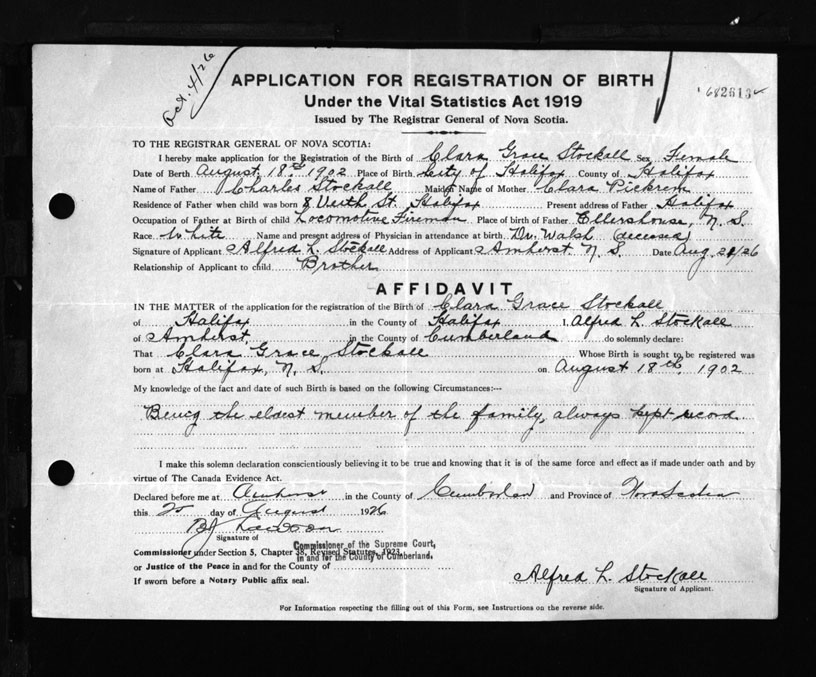 Oct. 4/26
APPLICATION FOR REGISTRATION OF BIRTH
Under the Vital Statistics Act 1919
Issued by The Registrar General of Nova Scotia.
TO THE REGISTRAR GENERAL OF NOVA SCOTIA:
I hereby make application for the Registration of the Birth of Clara Grace Stockall Sex Female
Date of Birth August 18th 1902 Place of Birth City of Halifax County of Halifax
Name of Father Charles Stockall Maiden Name of Mother Clara Pickrem
Residence of Father when child was born 8 St. Halifax Present address of Father Halifax
Occupation of Father at Birth of child Locomotive Fireman Place of birth of Father Ellershouse, N. S.
Race White Name and present address of Physician in attendance at birth Dr. Walsh (deceased)
Signature of Applicant Alfred L. Stockall Address of Applicant Amherst N. S. Date Aug. /26
Relationship of Applicant to child Brother
AFFIDAVIT
IN THE MATTER of the application for the registration of the Birth of Clara Grace Stockall
of Halifax in the County of Halifax I, Alfred L. Stockall
of Amherst in the County of Cumberland do solemnly declare:
That Clara Grace Stockall Whose Birth is sought to be registered was
born at Halifax, N. S. on August 18th, 1902
My knowledge of the fact and date of such Birth is based on the following Circumstances:—
Being the eldest member of the family, always kept record.
I make this solemn declaration conscientiously believing it to be true and knowing that it is of the same force and effect as if made under oath and by
virtue of The Canada Evidence Act.
Declared before me at Amherst in the County of Cumberland and Province of Nova Scotia
this day of August 1926
Signature of
Commissioner of the Supreme Court,
in and for the County of Cumberland.
Commissioner under Section 5, Chapter 38, Revised Statutes, 1923
or Justice of the Peace in and for the County of
If sworn before a Notary Public affix seal.
Alfred L. Stockall
Signature of Applicant.
For Information respecting the filling out of this Form, see Instructions on the reverse side.